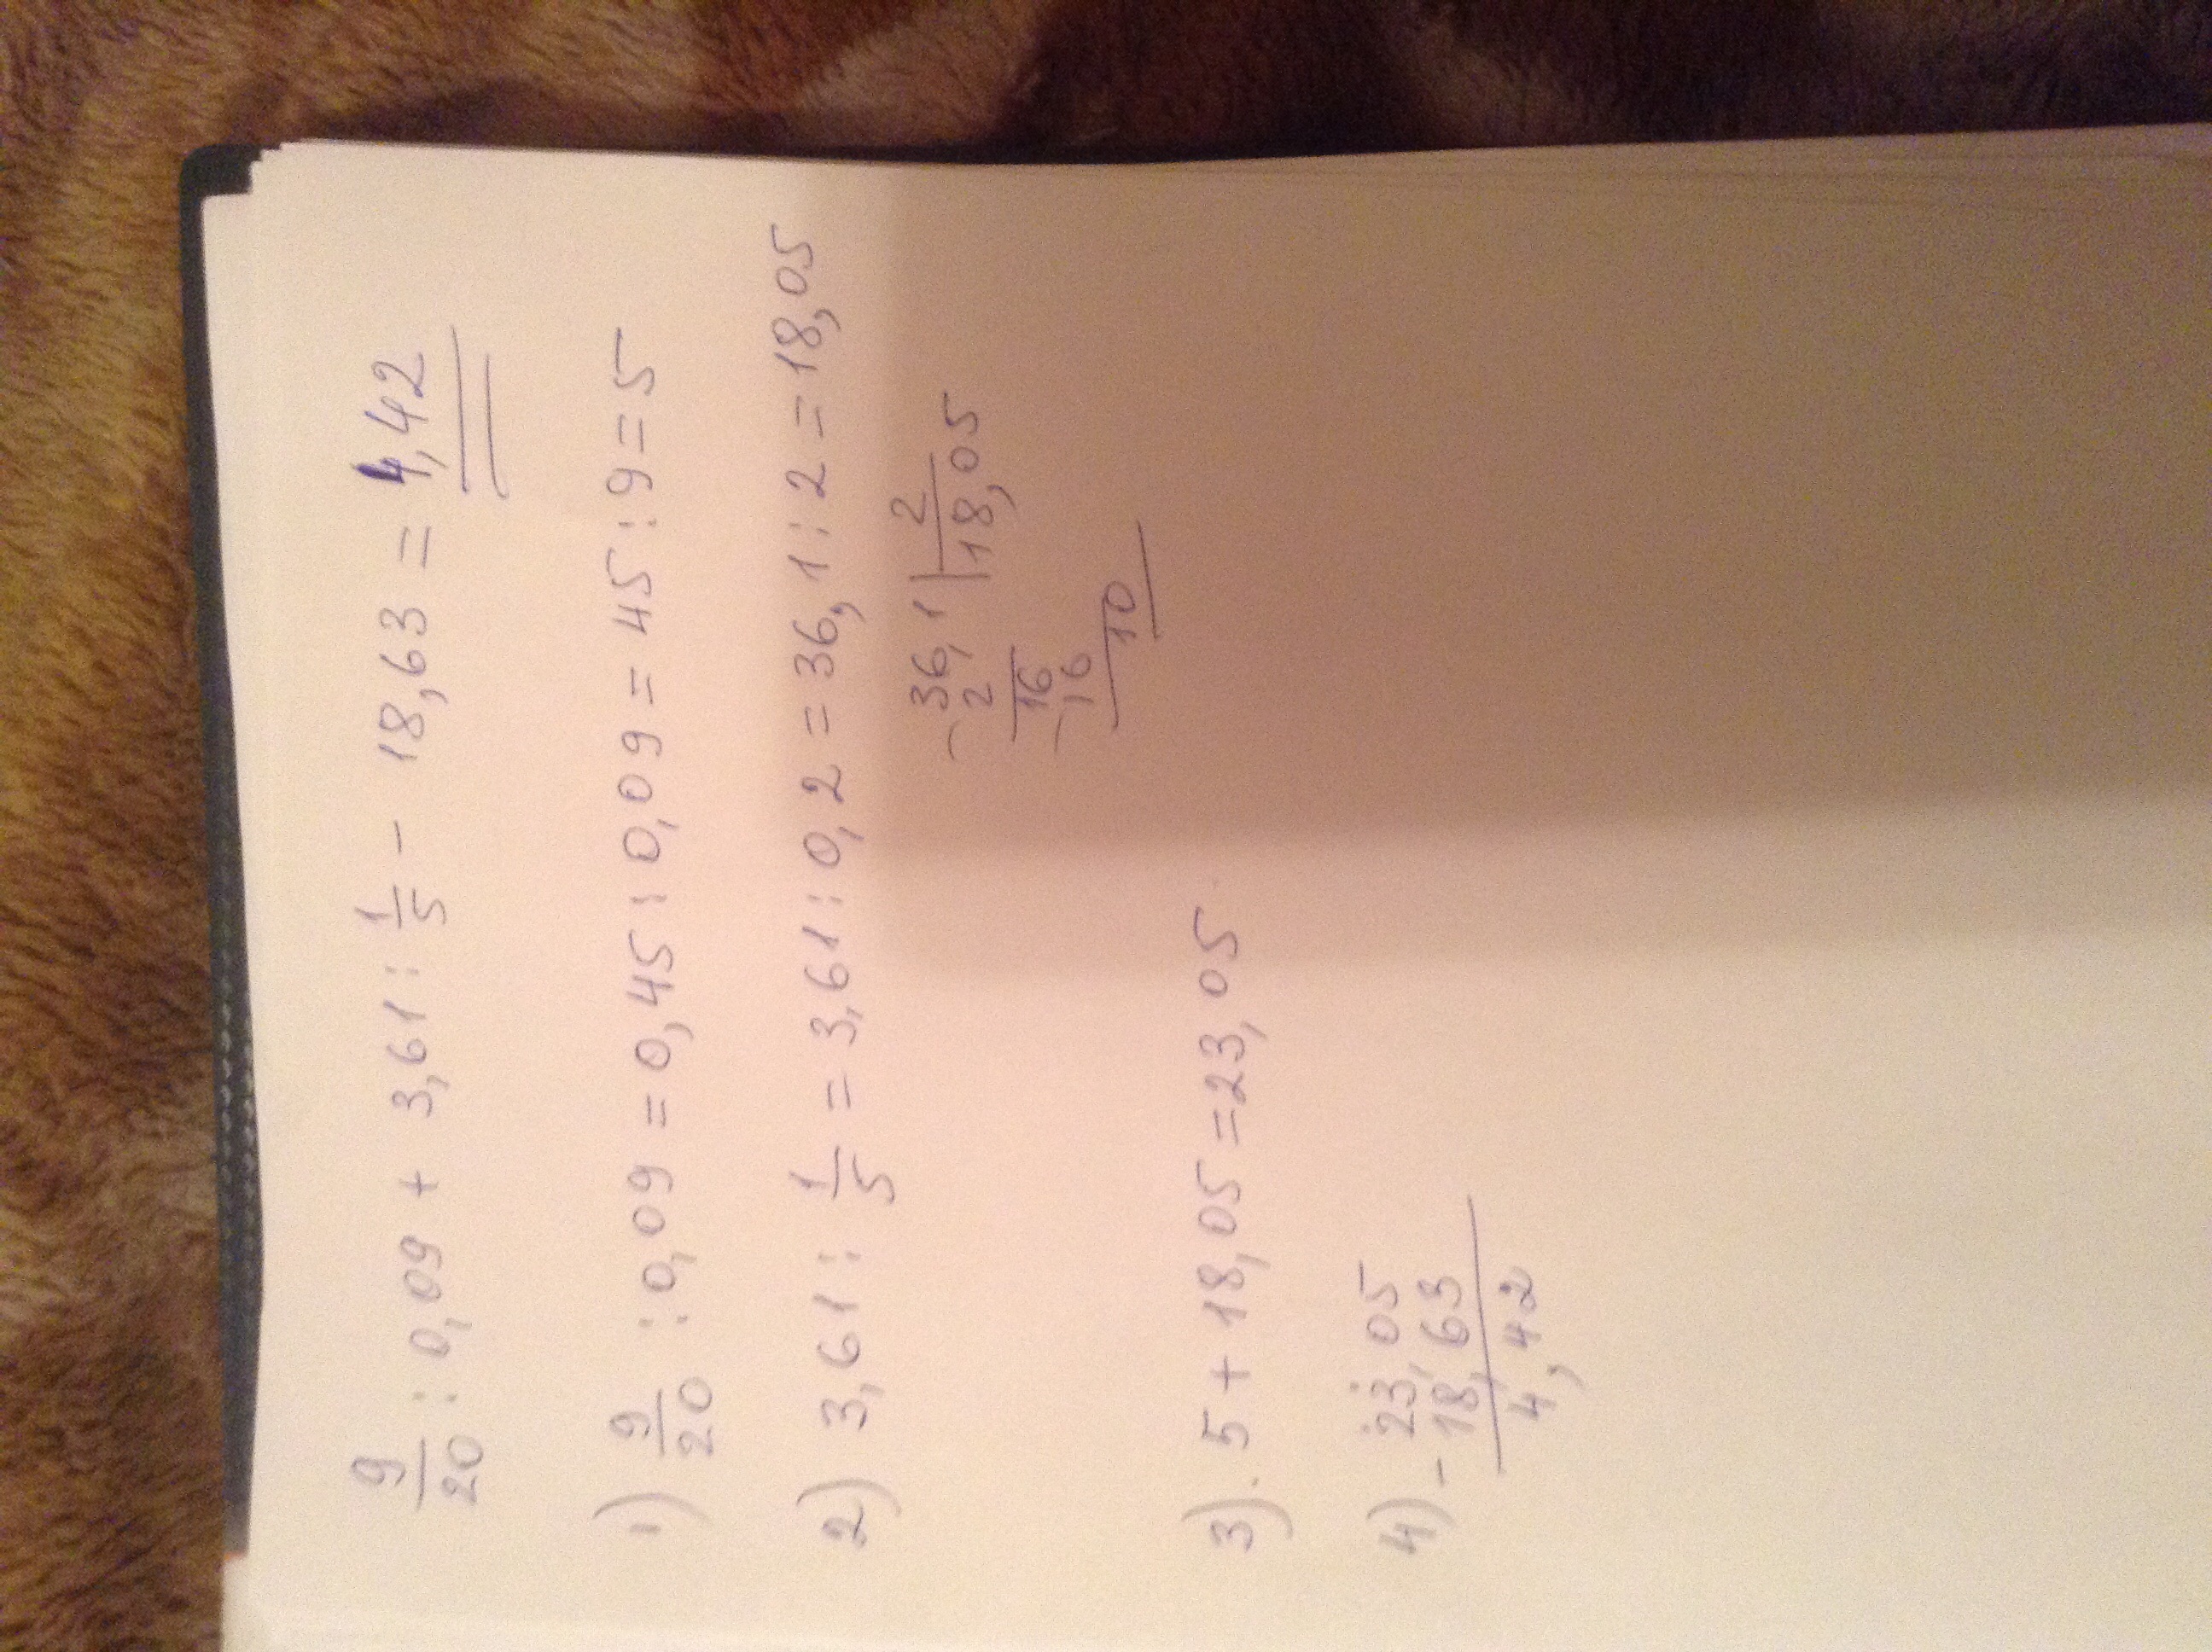 9/20 : 0,09 + 3,61 : 1/5 - 18,63 = 4,42
1) 9/20 : 0,09 = 0,45 : 0,09 = 45 : 9 = 5
2) 3,61 : 1/5 = 3,61 : 0,2 = 36,1 : 2 = 18,05
-36,1 | 2
2 | 18,05
16
-16
10
3). 5 + 18,05 = 23,05
4) - 23,05
18,63
4,42